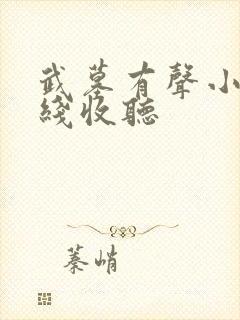 武墓有聲小
綫收聽
蓁峭